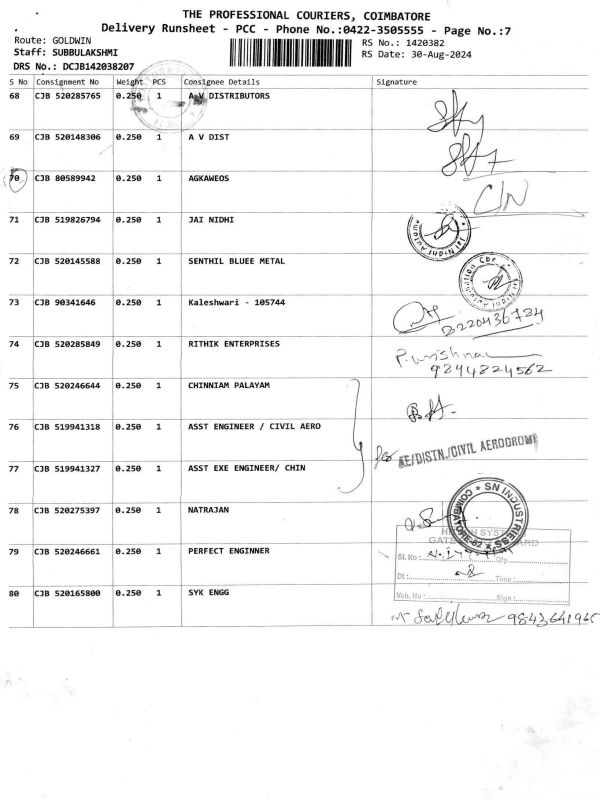 THE PROFESSIONAL COURIERS, COIMBATORE
Delivery Runsheet - PCC - Phone No.:0422-3505555 - Page No.:7
Route: GOLDWIN
RS No.: 1420382
Staff: SUBBULAKSHMI
RS Date: 30-Aug-2024
DRS No.: DCJB142038207
S No Consignment No Weight PCS Consignee Details Signature
68 CJB 520285765 0.250 1 A V DISTRIBUTORS
69 CJB 520148306 0.250 1 A V DIST
70 CJB 80589942 0.250 1 AGKAWEOS
71 CJB 519826794 0.250 1 JAI NIDHI
72 CJB 520145588 0.250 1 SENTHIL BLUEE METAL
73 CJB 90341646 0.250 1 Kaleshwari - 105744
74 CJB 520285849 0.250 1 RITHIK ENTERPRISES
9244224562
75 CJB 520246644 0.250 1 CHINNIAM PALAYAM
76 CJB 519941318 0.250 1 ASST ENGINEER / CIVIL AERO
AE/DISTN./CIVIL AERODROME
77 CJB 519941327 0.250 1 ASST EXE ENGINEER/ CHIN
78 CJB 520275397 0.250 1 NATRAJAN
SN INDUSTRIESS
COIMBATORE-62
79 CJB 520246661 0.250 1 PERFECT ENGINNER
Sl. No : Qty
Dt : Time :
Veh. No : Sign :
80 CJB 520165800 0.250 1 SYK ENGG
9843641965